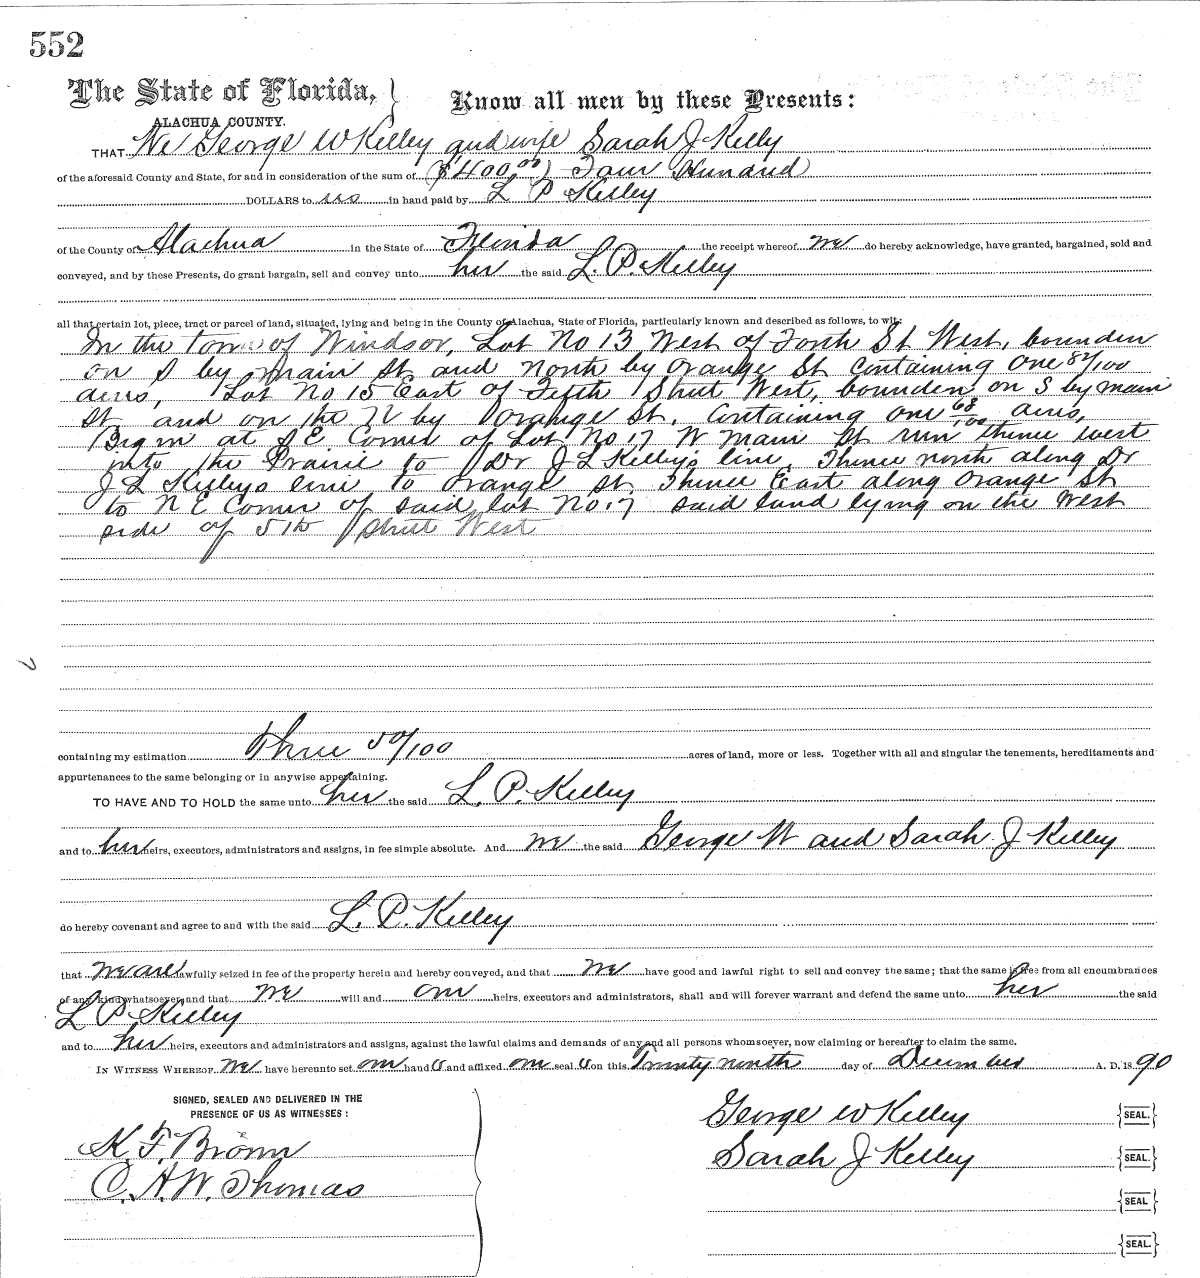 552
The State of Florida, }
ALACHUA COUNTY.
Know all men by these Presents:
THAT We George W Kelley and wife Sarah J Kelly
of the aforesaid County and State, for and in consideration of the sum of ($400.00) Four Hundred
DOLLARS to us in hand paid by L P Kelley
of the County of Alachua in the State of Florida the receipt whereof we do hereby acknowledge, have granted, bargained, sold and
conveyed, and by these Presents, do grant bargain, sell and convey unto her the said L. P. Kelley
all that certain lot, piece, tract or parcel of land, situated, lying and being in the County of Alachua, State of Florida, particularly known and described as follows, to wit:
In the town of Windsor, Lot No 13 West of Forth St West, bounden
on S by Main St and North by Orange St Containing One 82/100
acres, Lot No 15 East of Fifth Street West, bounden on S by main
St and on the N by Orange St. Containing one 68/100 acres,
Begin at S E Corner of Lot No 17 W Main St run thence west
into the Prairie to Dr J L Kelley's line, Thence north along Dr
J L Kelleys line to Orange St, Thence East along Orange St
to N E Corner of said lot No 17 said land lying on the West
side of 5th Street West
containing my estimation Three 50/100 acres of land, more or less. Together with all and singular the tenements, hereditaments and
appurtenances to the same belonging or in anywise appertaining.
TO HAVE AND TO HOLD the same unto her the said L. P. Kelley
and to her heirs, executors, administrators and assigns, in fee simple absolute. And we the said George W and Sarah J Kelley
do hereby covenant and agree to and with the said L. P. Kelley
that we are lawfully seized in fee of the property herein and hereby conveyed, and that we have good and lawful right to sell and convey the same; that the same is free from all encumbrances
of any kind whatsoever, and that we will and our heirs, executors and administrators, shall and will forever warrant and defend the same unto her the said
L P Kelley
and to her heirs, executors and administrators and assigns, against the lawful claims and demands of any and all persons whomsoever, now claiming or hereafter to claim the same.
IN WITNESS WHEREOF, we have hereunto set our hand s and affixed our seal s on this Twenty ninth day of December A. D. 1890
SIGNED, SEALED AND DELIVERED IN THE
PRESENCE OF US AS WITNESSES:
K. F. Brown
C. A. W. Thomas
George W Kelley {SEAL.}
Sarah J Kelley {SEAL.}
{SEAL}
{SEAL.}